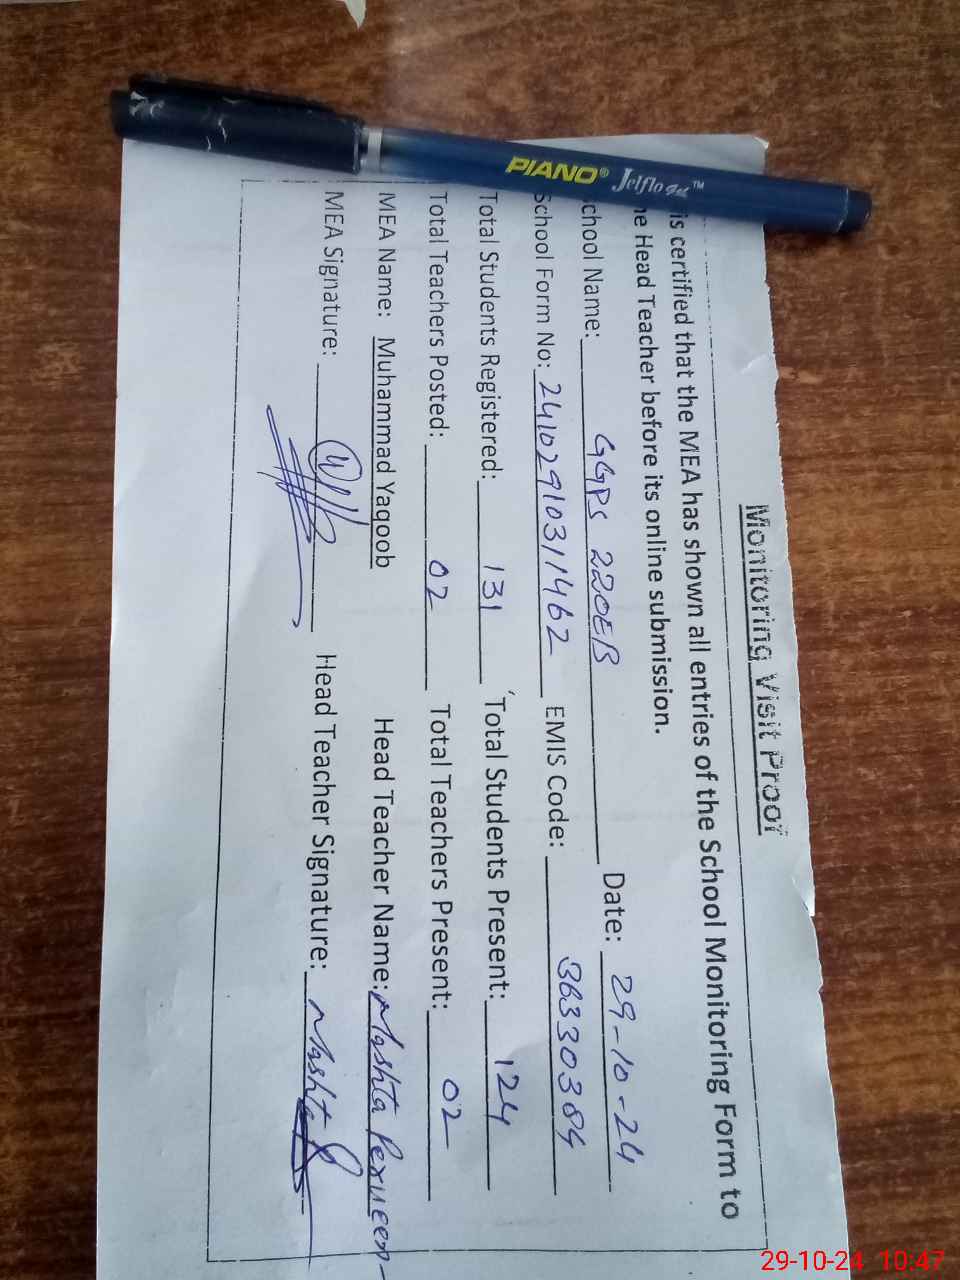 Monitoring Visit Proof
is certified that the MEA has shown all entries of the School Monitoring Form to
he Head Teacher before its online submission.
chool Name: GGPS 220EB Date: 29-10-24
School Form No: 24102910311462 EMIS Code: 36330384
Total Students Registered: 131 Total Students Present: 124
Total Teachers Posted: 02 Total Teachers Present: 02
MEA Name: Muhammad Yaqoob Head Teacher Name: Mashta Perveen
MEA Signature: Head Teacher Signature: Mashta
PIANO® Jelflo gel™
29-10-24 10:47